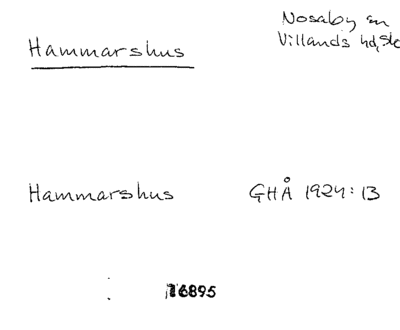 Nosaby sn
Villands hd, Sk
Hammarshus
Hammarshus GHÅ 1924:13
16895